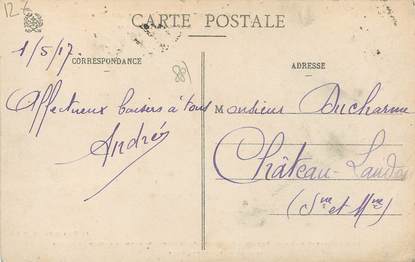 12 €
CARTE POSTALE
1/5/17.
CORRESPONDANCE
ADRESSE
Affectueux baisers à tous
André
Monsieur Ducharme
Château-Landon
(Sne et Mne)